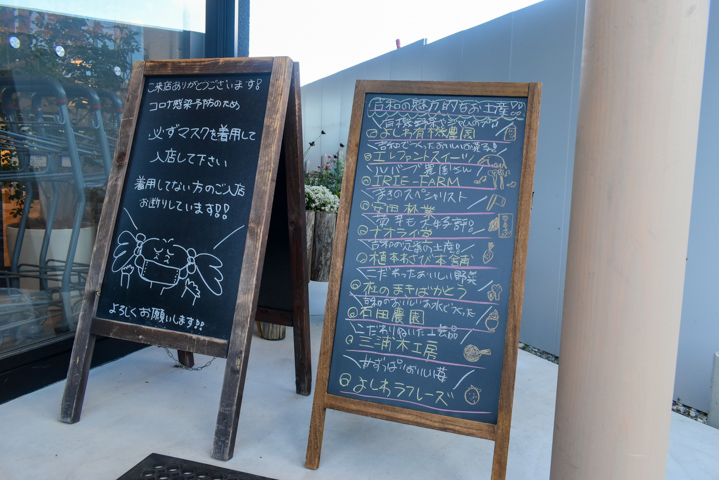 ご来店ありがとうございます!
コロナ感染予防のため
必ずマスクを着用して
入店して下さい
着用してない方のご入店
お断りしています!!
よろしくお願いします!!
吉和の魅力的なお土産!!
有機野菜やジャムのアイス
@よしわ有機農園
吉和で作ったおいしいお菓子!!
@エレファントスイーツ
@IRIE-FARM
木のスペシャリスト
@安田林業
@オライ堂
吉和の定番の土産!
@植本わさび本舗
こだわったおいしい野菜
@杜のまきばかとう
吉和のおいしいお水でつくった
@有田農園
こだわり抜いた工芸品
@三浦木工房
甘ずっぱいおいしい苺
@よしわラフレーズ